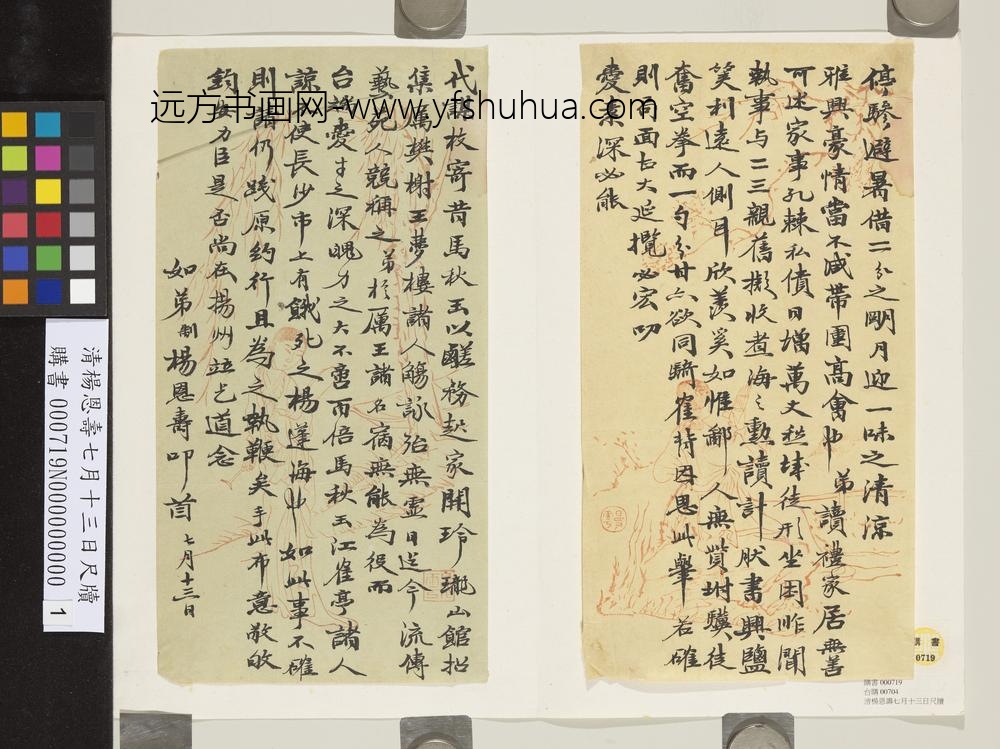 停驂避暑借二分之明月迎一味之清涼
雅興豪情當不減帶團高會中弟讀禮家居無善
可述家事孔棘私債日增萬丈愁城徒形坐困昨聞
執事与二三親舊擬收煮海之勲讀計肰書興鹽
笑利遠人側耳欣羨奚如惟鄙人無貲坿驥徒
奮空拳而一勺分甘六欲同臍雀持因思此舉若確
則局面古大延攬必宏叨
愛深必能
代謀枚寄昔馬秋玉以鹾務起家開玲瓏山館招
集厲樊榭王夢樓諸人觴詠殆無虛日迄今流傳
藝苑人競稱之弟於厲王諸名宿無能為役而
台之愛才之深魄力之大不啻而倍馬秋玉江雀亭諸人
諒使長沙市上有餓死之楊蓬海中如此事不確
則請仍踐原約行且為之執鞭矣手此布意敬敂
鈞安力臣是否尚在揚州竝乞道念
如弟制楊恩壽叩首七月十三日
远方书画网-www.yfshuhua.com
清楊恩壽七月十三日尺牘
購書 000719N000000000 1
購書
0719
購書 000719
台購 00704
清楊恩壽七月十三日尺牘